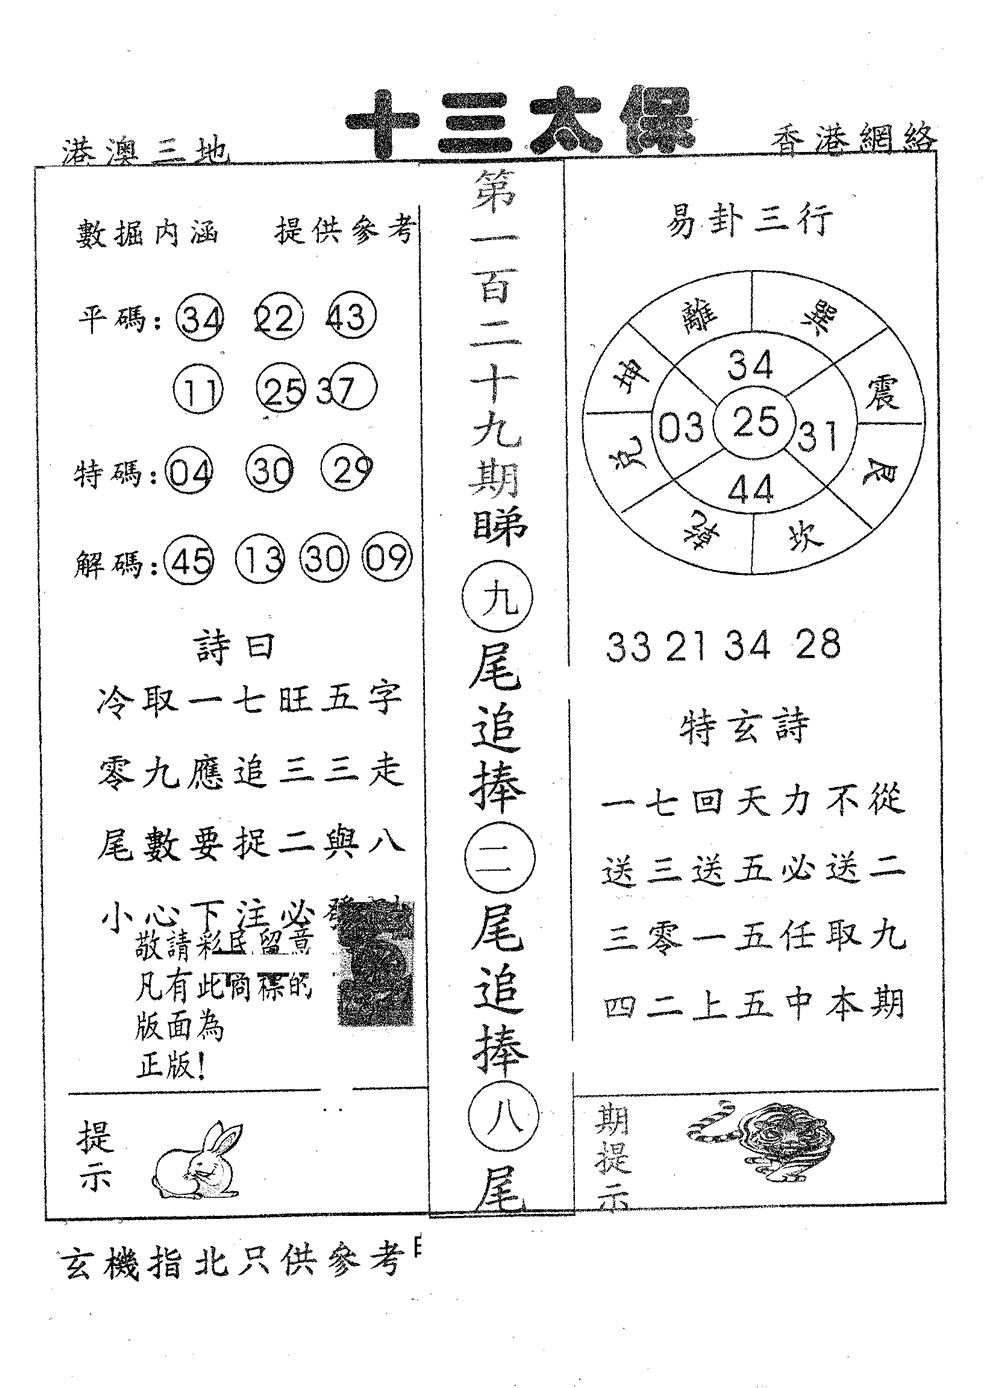 十三太保
港澳三地
香港網絡
數掘内涵 提供參考
平碼: 34 22 43
11 25 37
特碼: 04 30 29
解碼: 45 13 30 09
詩曰
冷取一七旺五字
零九應追三三走
尾數要捉二與八
小心下注必發
敬請彩民留意
凡有此商標的
版面為
正版!
提示
第一百二十九期睇九尾追捧二尾追捧八尾
易卦三行
離 巽
坤 震
兌 艮
乾 坎
34
03 25 31
44
33 21 34 28
特玄詩
一七回天力不從
送三送五必送二
三零一五任取九
四二上五中本期
期提示
玄機指北只供參考